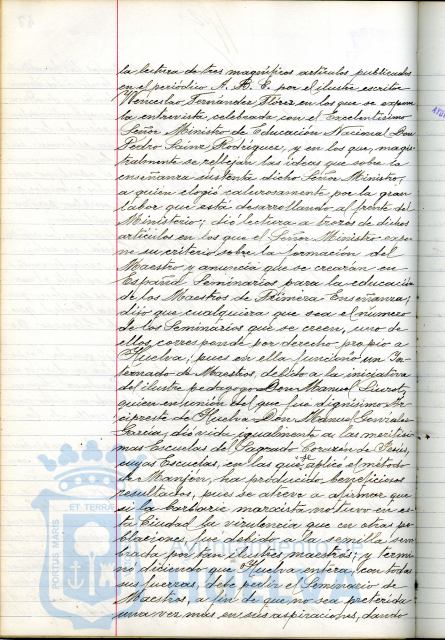 la lectura de tres magníficos artículos publicados
en el periódico A. B. C. por el ilustre escritor
Wenceslao Fernández Flórez en los que se expone
la entrevista celebrada con el Excelentísimo
Señor Ministro de Educación Nacional Don
Pedro Sáinz Rodríguez, y en los que, magis-
tralmente se reflejan las ideas que sobre la
enseñanza sustenta dicho Señor Ministro,
a quién elogió calurosamente por la gran
labor que está desarrollando al frente del
Ministerio; dió lectura a trozos de dichos
artículos en los que el Señor Ministro expo-
ne su criterio sobre la formación del
Maestro y anuncia que se crearán en
España Seminarios para la educación
de los Maestros de Primera Enseñanza;
dijo que cualquiera que sea el número
de los Seminarios que se creen, uno de
ellos corresponde por derecho propio a
Huelva, pues en ella funcionó un In-
ternado de Maestros, debido a la iniciativa
del ilustre pedagogo Don Manuel Siurot,
quien en unión del que fué dignísimo Ar-
cipreste de Huelva Don Manuel González
García, dió vida igualmente a las meritísi-
mas Escuelas del Sagrado Corazón de Jesús,
cuyas Escuelas, en las que se aplicó el método
de Manjón, ha producido beneficiosos
resultados, pues se atreve a afirmar que
si la barbarie marxista no tuvo en es-
ta Ciudad la virulencia que en otras po-
blaciones, fué debido a la semilla sem-
brada por tan ilustres maestros; y termi-
nó diciendo que Huelva entera, con todas
sus fuerzas, debe pedir el Seminario de
Maestros, a fin de que no sea preterida
una vez más en sus aspiraciones, dando
PORTUS MARIS
ET TERRÆ
HUELVA